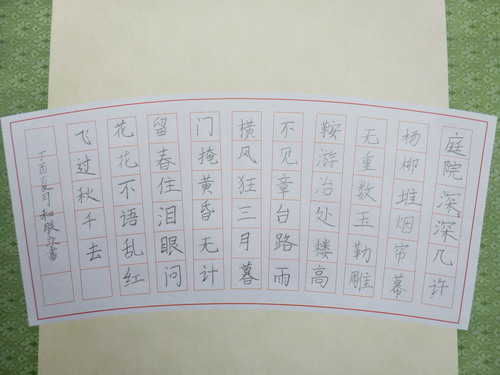 庭院深深几许
杨柳堆烟帘幕
无重数玉勒雕
鞍游冶处楼高
不见章台路雨
横风狂三月暮
门掩黄昏无计
留春住泪眼问
花花不语乱红
飞过秋千去
丁酉夏月和书